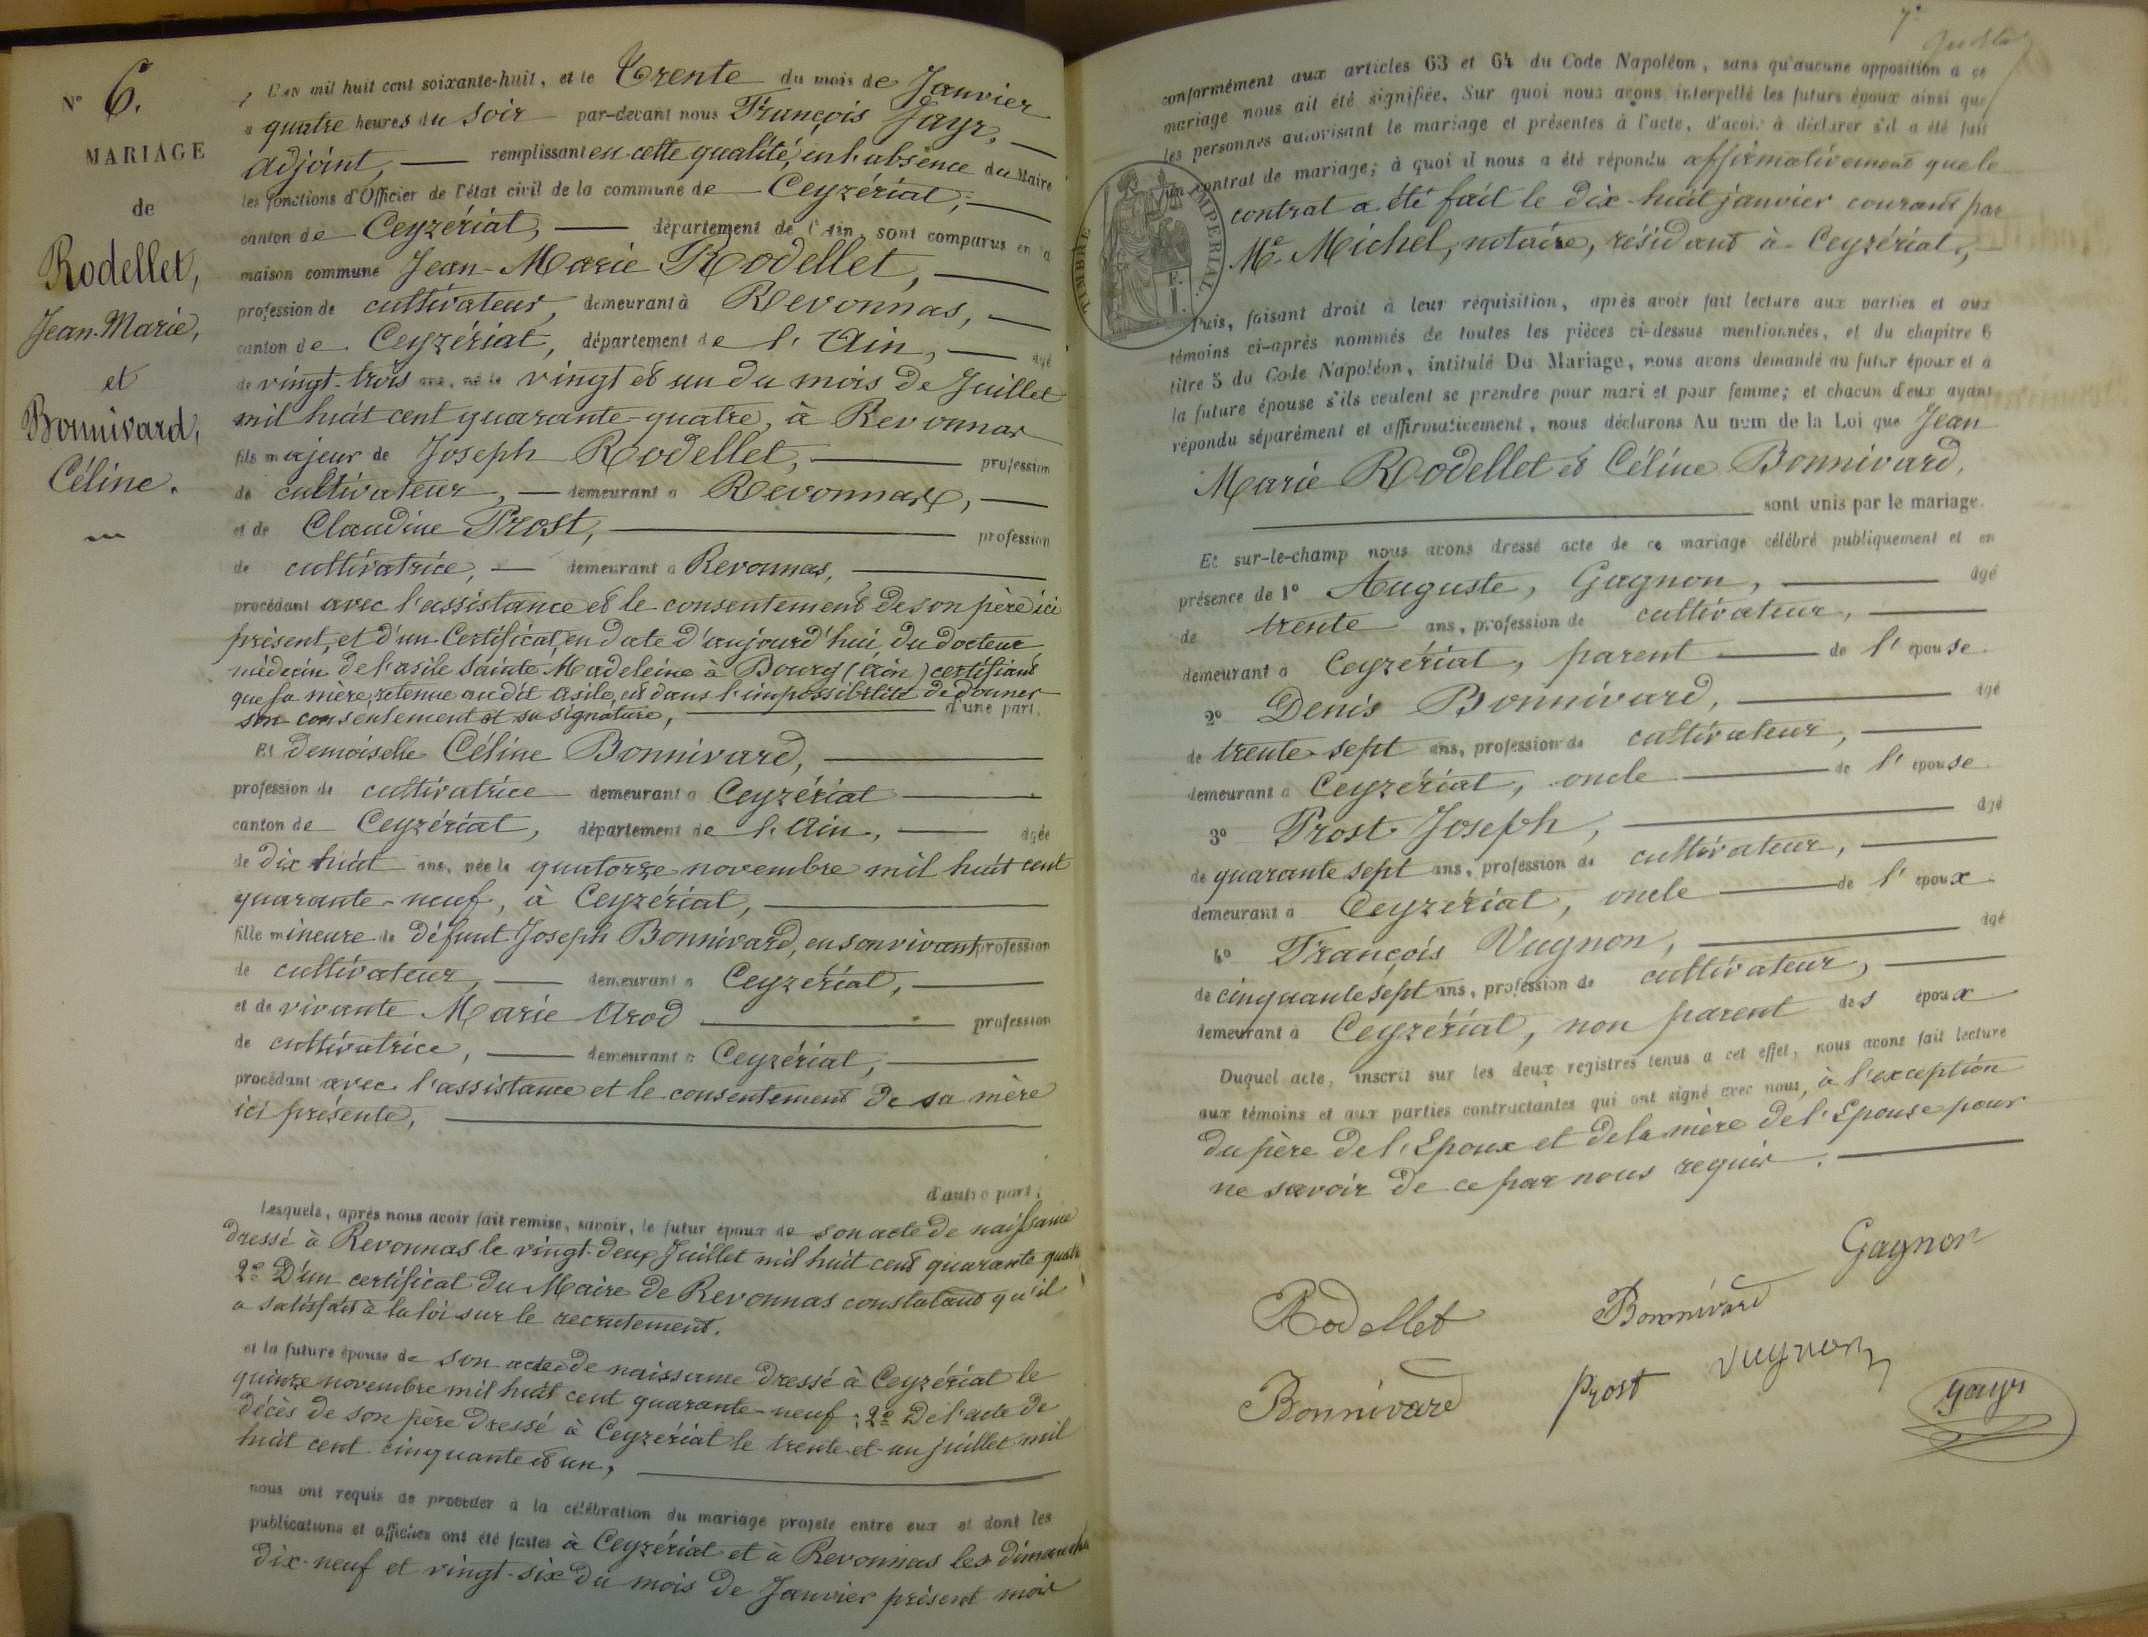 N° 6.
MARIAGE
de
Rodellet,
Jean-Marie,
et
Bonnivard,
Céline.
L'an mil huit cent soixante-huit, et le Trente du mois de Janvier
a quatre heures du soir par-devant nous François Jayr,
adjoint, remplissant en cette qualité, en l'absence du Maire
les fonctions d'Officier de l'état civil de la commune de Ceyzériat,
canton de Ceyzériat, département de l'Ain, sont comparus en la
maison commune Jean-Marie Rodellet,
profession de cultivateur, demeurant à Revonnas,
canton de Ceyzériat, département de l'Ain, âgé
de vingt-trois ans, né le vingt et un du mois de Juillet
mil huit cent quarante-quatre, à Revonnas
fils majeur de Joseph Rodellet, profession
de cultivateur, demeurant a Revonnas,
et de Claudine Prost, profession
de cultivatrice, demeurant a Revonnas,
procédant avec l'assistance et le consentement de son père ici
présent, et d'un Certificat, en date d'aujourd'hui, du docteur
médecin de l'asile Sainte Madeleine à Bourg (Ain) certifiant
que sa mère, retenue audit asile, est dans l'impossibilité de donner
son consentement et sa signature, d'une part,
Et demoiselle Céline Bonnivard,
profession de cultivatrice demeurant a Ceyzériat
canton de Ceyzériat, département de l'Ain, agée
de dix huit ans, née le quatorze novembre mil huit cent
quarante-neuf, à Ceyzériat,
fille mineure de défunt Joseph Bonnivard, en son vivant profession
de cultivateur, demeurant a Ceyzériat,
et de vivante Marie Arod profession
de cultivatrice, demeurant a Ceyzériat,
procédant avec l'assistance et le consentement de sa mère
ici présente,
d'autre part;
Lesquels, après nous avoir fait remise, savoir, le futur époux de son acte de naissance
dressé à Revonnas le vingt-deux Juillet mil huit cent quarante quatre
2° D'un certificat du Maire de Revonnas constatant qu'il
a satisfait à la loi sur le recrutement.
et la future épouse de son acte de naissance dressé à Ceyzériat le
quinze novembre mil huit cent quarante-neuf; 2° De l'acte de
décès de son père dressé à Ceyzériat le trente-et-un juillet mil
huit cent cinquante et un,
nous ont requis de procéder a la célébration du mariage projeté entre eux et dont les
publications et affiches ont été faites à Ceyzériat et à Revonnas les dimanches
dix-neuf et vingt-six du mois de Janvier présent mois
7
conformément aux articles 63 et 64 du Code Napoléon, sans qu'aucune opposition a ce
mariage nous ait été signifiée. Sur quoi nous avons interpellé les futurs époux ainsi que
les personnes autorisant le mariage et présentes à l'acte, d'avoir à déclarer s'il a été fait
un contrat de mariage; à quoi il nous a été répondu affirmativement que le
contrat a été fait le dix-huit janvier courant par
Me Michel, notaire, résidant à Ceyzériat,
TIMBRE IMPERIAL
Puis, faisant droit à leur réquisition, après avoir fait lecture aux parties et aux
témoins ci-après nommés de toutes les pièces ci-dessus mentionnées, et du chapitre 6
titre 5 du Code Napoléon, intitulé Du Mariage, nous avons demandé au futur époux et a
la future épouse s'ils veulent se prendre pour mari et pour femme; et chacun d'eux ayant
répondu séparément et affirmativement, nous déclarons Au nom de la Loi que Jean
Marie Rodellet et Céline Bonnivard,
sont unis par le mariage.
Et sur-le-champ nous avons dressé acte de ce mariage célébré publiquement et en
présence de 1° Auguste, Gagnon, âgé
de trente ans, profession de cultivateur,
demeurant a Ceyzériat, parent de l'epouse
2° Denis Bonnivard, âgé
de trente-sept ans, profession de cultivateur,
demeurant a Ceyzériat, oncle de l'epouse
3° Prost Joseph, âgé
de quarante sept ans, profession de cultivateur,
demeurant a Ceyzériat, oncle de l'epoux
4° François Vugnon, âgé
de cinquante sept ans, profession de cultivateur,
demeurant a Ceyzériat, non parent des époux
Duquel acte, inscrit sur les deux registres tenus a cet effet, nous avons fait lecture
aux témoins et aux parties contractantes qui ont signé avec nous, à l'exception
du père de l'Epoux et de la mère de l'Epouse pour
ne savoir de ce par nous requis.
Gagnon
Rodellet Bonnivard
Bonnivard Prost Vugnon
Jayr